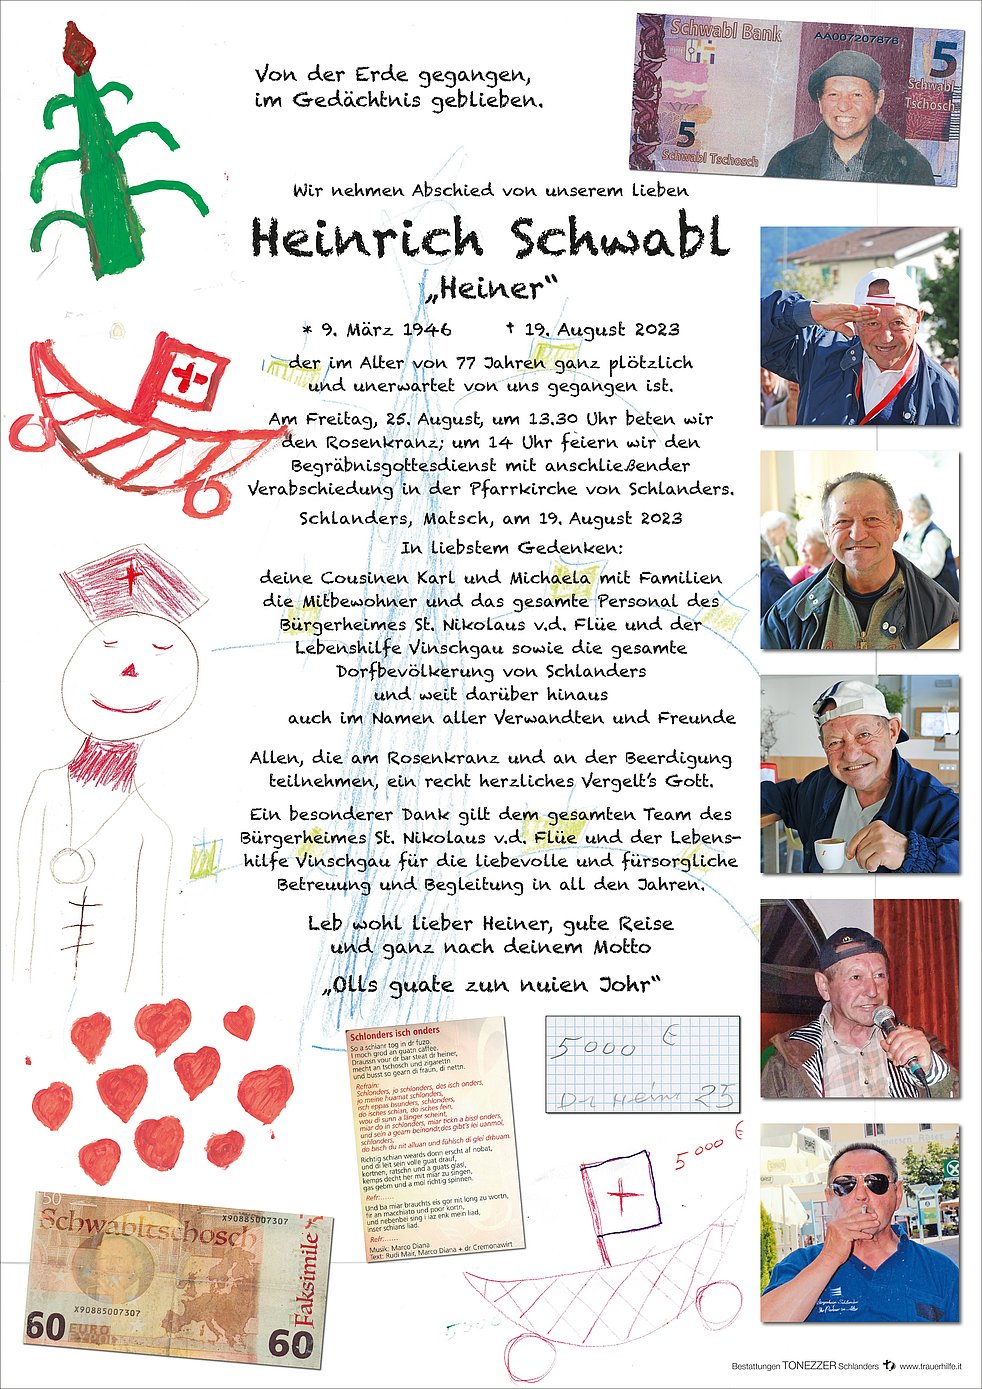 Von der Erde gegangen,
im Gedächtnis geblieben.
Schwabl Bank
AA007207878
5
Schwabl
Tschosch
5
Schwabl Tschosch
Wir nehmen Abschied von unserem lieben
Heinrich Schwabl
„Heiner“
* 9. März 1946 † 19. August 2023
der im Alter von 77 Jahren ganz plötzlich
und unerwartet von uns gegangen ist.
Am Freitag, 25. August, um 13.30 Uhr beten wir
den Rosenkranz; um 14 Uhr feiern wir den
Begräbnisgottesdienst mit anschließender
Verabschiedung in der Pfarrkirche von Schlanders.
Schlanders, Matsch, am 19. August 2023
In liebstem Gedenken:
deine Cousinen Karl und Michaela mit Familien
die Mitbewohner und das gesamte Personal des
Bürgerheimes St. Nikolaus v.d. Flüe und der
Lebenshilfe Vinschgau sowie die gesamte
Dorfbevölkerung von Schlanders
und weit darüber hinaus
auch im Namen aller Verwandten und Freunde
Allen, die am Rosenkranz und an der Beerdigung
teilnehmen, ein recht herzliches Vergelt’s Gott.
Ein besonderer Dank gilt dem gesamten Team des
Bürgerheimes St. Nikolaus v.d. Flüe und der Lebens-
hilfe Vinschgau für die liebevolle und fürsorgliche
Betreuung und Begleitung in all den Jahren.
Leb wohl lieber Heiner, gute Reise
und ganz nach deinem Motto
„Olls guate zun nuien Johr“
Schlonders isch onders
So a schianr tog in dr fuzo.
I moch grod an guatn caffee.
Draussn vour dr bar steat dr heiner,
mecht an tschosch und zigarettn
und busst so gearn di fraun, di nettn.
Refrain:
Schlonders, jo schlonders, des isch onders,
jo meine huamat schlonders,
isch eppas bsunders, schlonders,
do isches schian, do isches fein,
wou di sunn a länger scheint,
miar do in schlonders, miar tickn a bissl onders,
und sein a gearn beinondr,des gibt's lei uanmol,
schlonders,
do bisch du nit alluan und fühlsch di glei drhuam.
Richtig schian weards donn erscht af nobat,
und di leit sein volle guat drauf,
kortnen, ratschn und a guats glasl,
kemps decht her mit miar zu singen,
gas gebm und a mol richtig spinnen.
Refr:......
Und ba miar brauchts eis gor nit long zu wortn,
fir an macchiato und poor kortn,
und nebenbei sing i iaz enk mein liad,
inser schians liad.
Refr:......
Musik: Marco Diana
Text: Rudi Mair, Marco Diana + dr Cremonawirt
5000 €
Dr Heini 25
5000 €
50
Schwabltschosch
X90885007307
X90885007307
Faksimile
60
EURO
60
Bestattungen TONEZZER Schlanders www.trauerhilfe.it